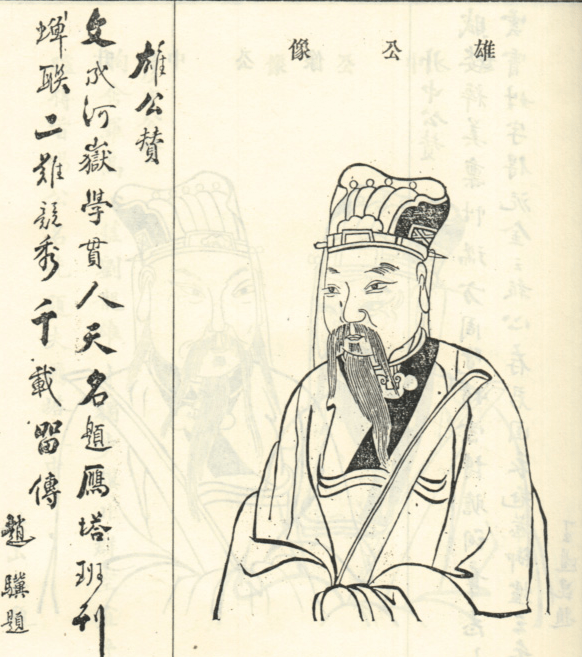 雄公像
雄公赞
文成河嶽學貫人天名題鴈塔班列
蟬联二難競秀千載留傳
趙驥題